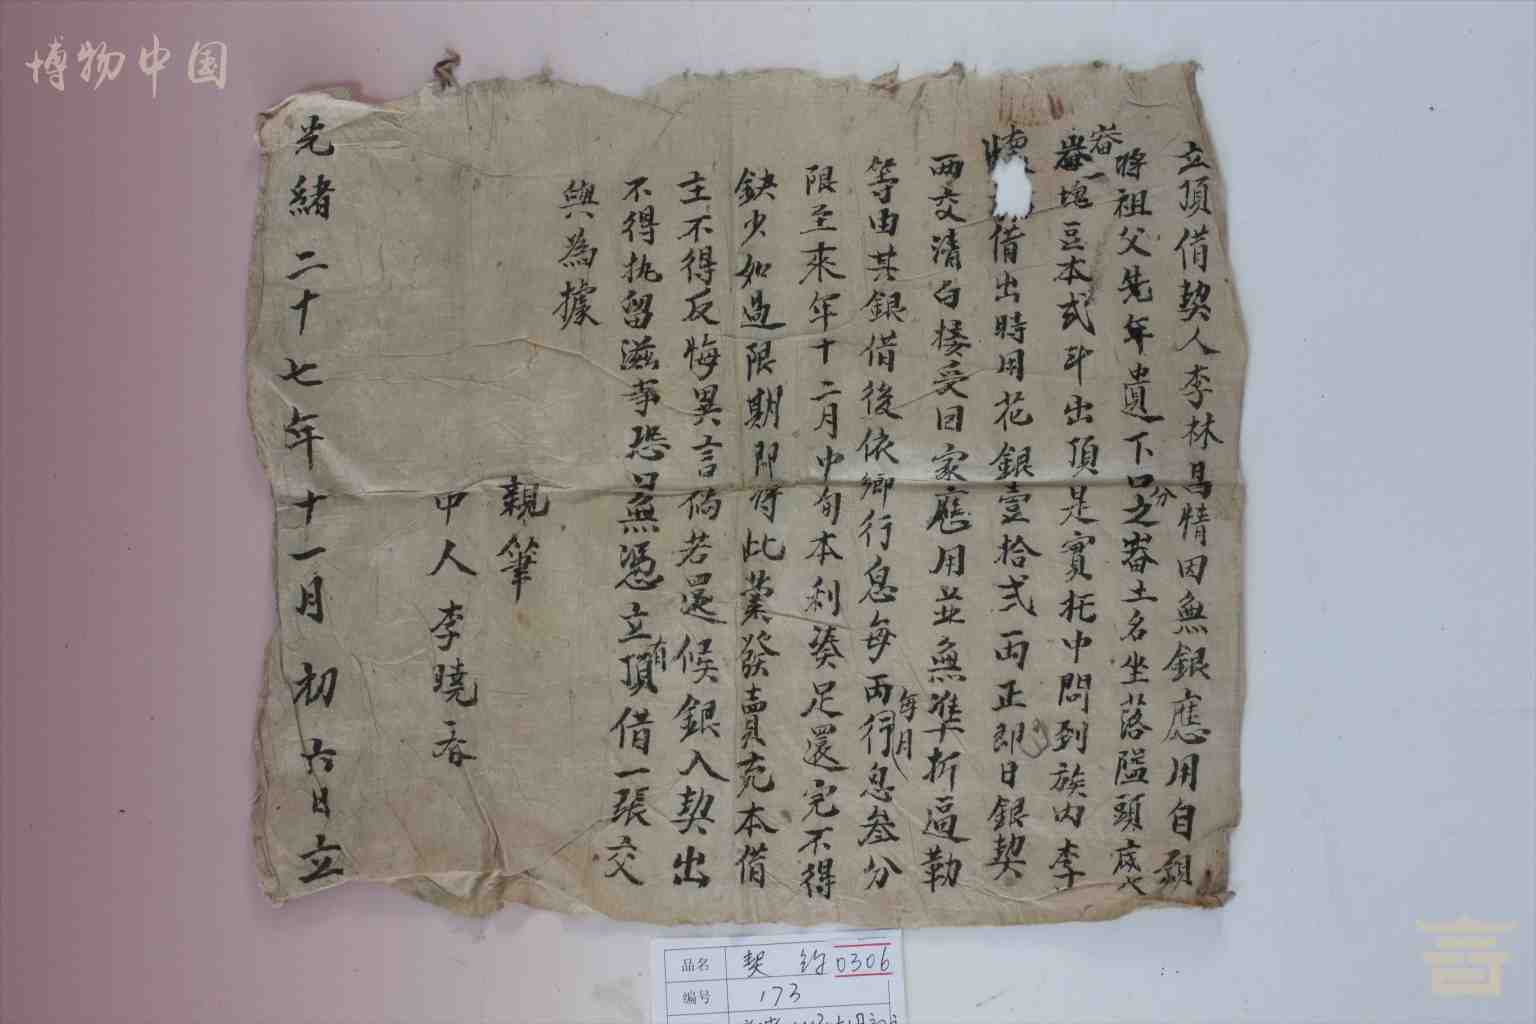 博物中国
立頂借契人李林昌情因無銀應用自願
將祖父先年遺下口分之畲土名坐落隘頭
畲一塊豆本弍斗出頂是實托中問到族内李
借出時用花銀壹拾弍両正即日銀契
両交清白接受回家應用並無準折逼勒
等由其銀借後依鄉行息每両每月行息叁分
限至來年十二月中旬本利湊足還完不得
缺少如過限期即將此業發賣充本借
主不得反悔異言倘若還候銀入契出
不得执留滋事恐口無憑立有頂借一張交
與為據
親筆
中人李曉春
光緒二十七年十一月初六日立
品名 契約 0306
编号 173